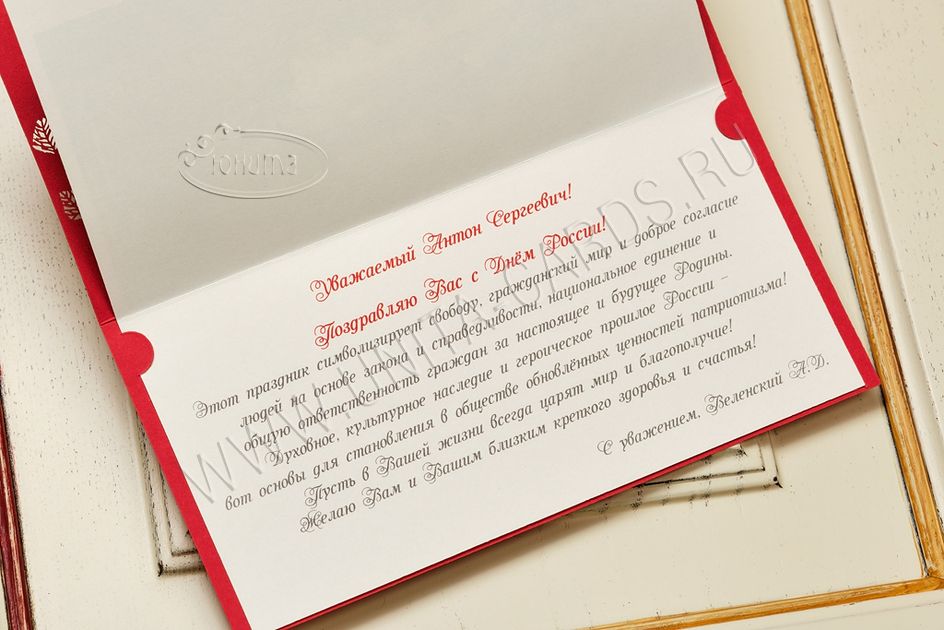 Юнита
Уважаемый Антон Сергеевич!
Поздравляю Вас с Днём России!
Этот праздник символизирует свободу, гражданский мир и доброе согласие
людей на основе закона и справедливости, национальное единение и
общую ответственность граждан за настоящее и будущее Родины.
Духовное, культурное наследие и героическое прошлое России –
вот основы для становления в обществе обновлённых ценностей патриотизма!
Пусть в Вашей жизни всегда царят мир и благополучие!
Желаю Вам и Вашим близким крепкого здоровья и счастья!
С уважением, Веленский А.Д.
WWW.UNITA-CARDS.RU